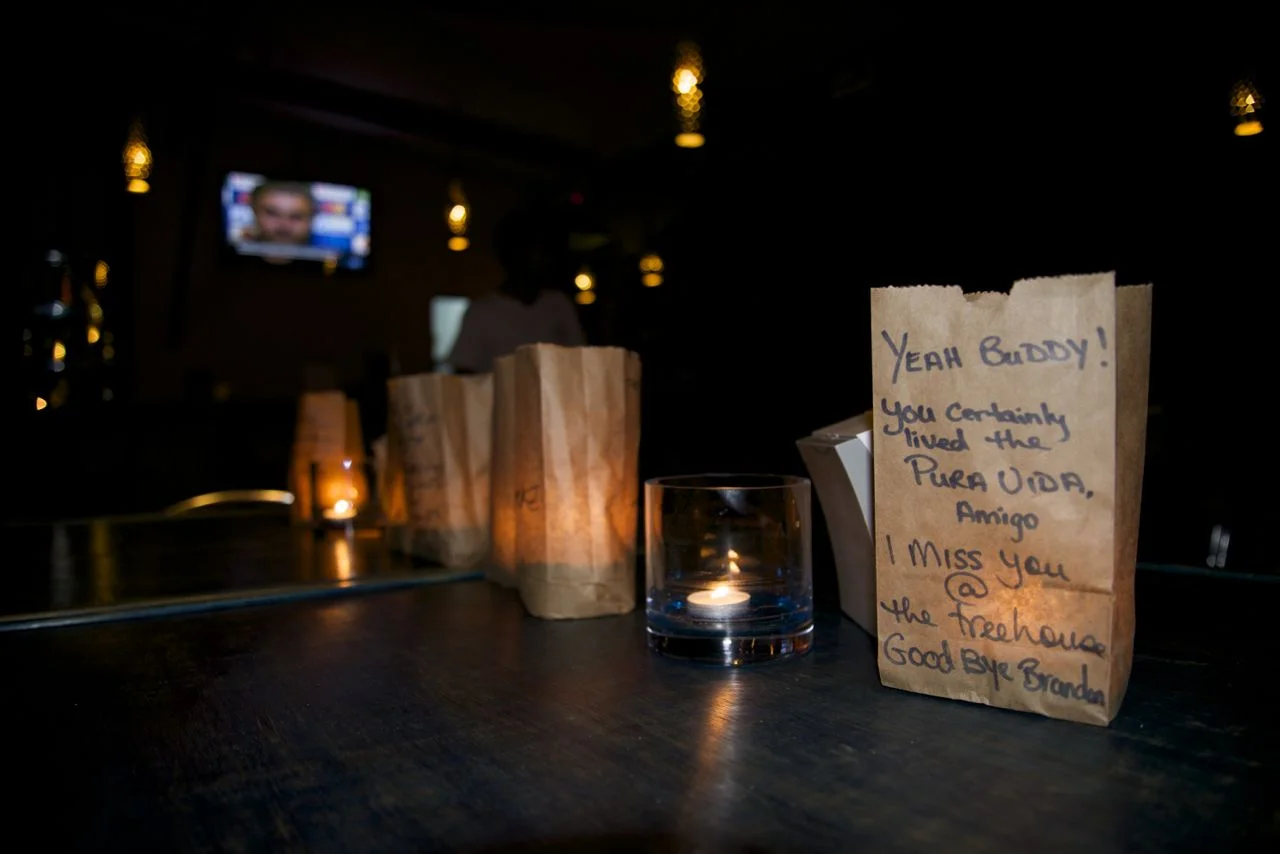 YEAH BUDDY!
You certainly
lived the
PURA VIDA,
Amigo
I Miss you
@
the treehouse
Good Bye Brandon